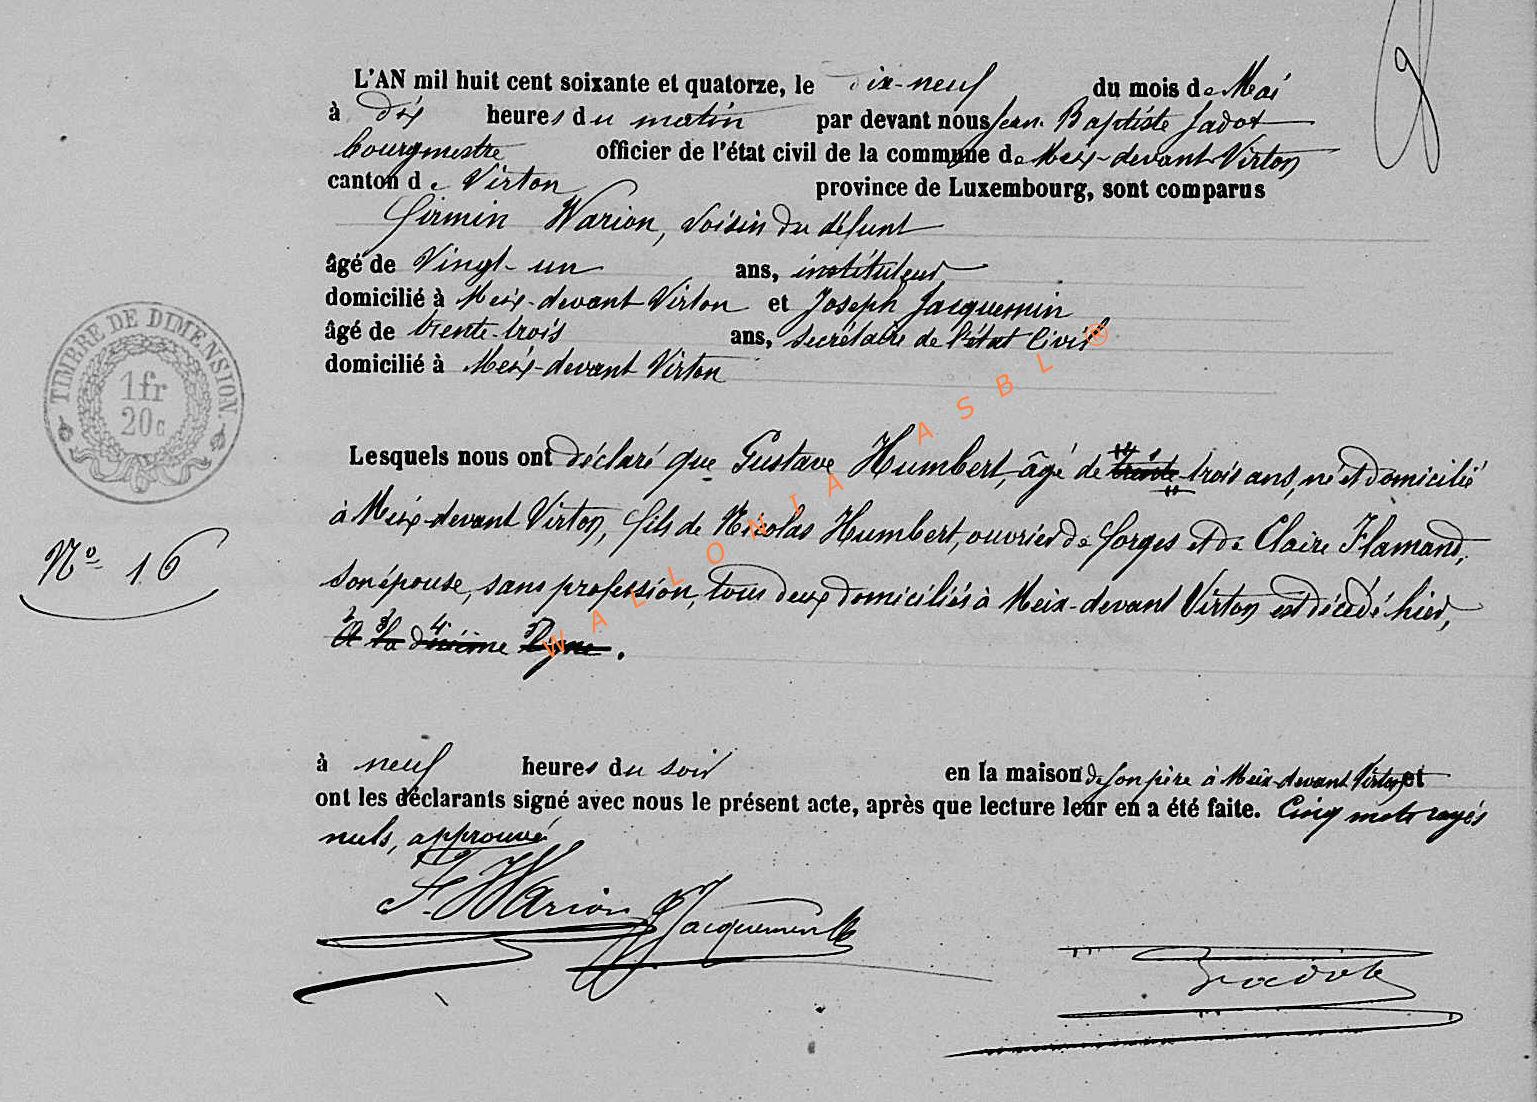 L'AN mil huit cent soixante et quatorze, le dix-neuf du mois de Mai
à dix heures du matin par devant nous Jean Baptiste Jadot
bourgmestre officier de l'état civil de la commune de Meix-devant-Virton
canton de Virton province de Luxembourg, sont comparus
Firmin Warion, voisin du défunt
âgé de vingt-un ans, instituteur
domicilié à Meix-devant Virton et Joseph Jacquemin
âgé de trente-trois ans, secrétaire de l'état civil
domicilié à Meix-devant Virton
TIMBRE DE DIMENSION.
1fr
20c
Lesquels nous ont déclaré que Gustave Humbert, âgé de trente-trois ans, né et domicilié
à Meix-devant Virton, fils de Nicolas Humbert, ouvrier de forges et de Claire Flamand,
son épouse, sans profession, tous deux domiciliés à Meix-devant Virton est décédé hier,
No 16
à la ligne.
à neuf heures du soir en la maison de son père à Meix-devant Virton et
ont les déclarants signé avec nous le présent acte, après que lecture leur en a été faite. Cinq mots rayés
nuls, approuvé
F. Warion J Jacquemin
Jadot
WALLONIA ASBL ®